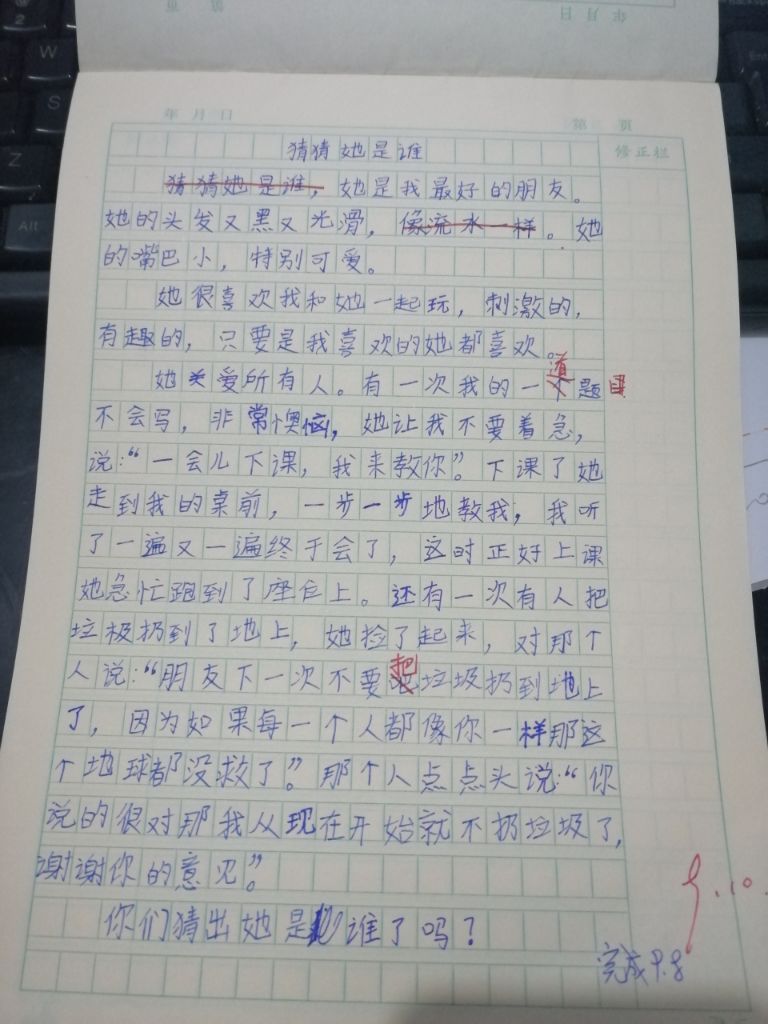 年 月 日 第 页
修正栏
猜猜她是谁
猜猜她是谁，她是我最好的朋友。
她的头发又黑又光滑，像流水一样。她
的嘴巴小，特别可爱。
她很喜欢我和她一起玩，刺激的，
有趣的，只要是我喜欢的她都喜欢。
她关爱所有人。有一次我的一道题目
不会写，非常懊恼，她让我不要着急，
说：“一会儿下课，我来教你”。下课了她
走到我的桌前，一步一步地教我，我听
了一遍又一遍终于会了，这时正好上课
她急忙跑到了座位上。还有一次有人把
垃极扔到了地上，她捡了起来，对那个
人说：“朋友下一次不要把垃圾扔到地上
了，因为如果每一个人都像你一样那这
个地球都没救了”。那个人点点头说：“你
说的很对那我从现在开始就不扔垃圾了，
谢谢你的意见”。
你们猜出她是谁了吗？
9.10.
完成9.8